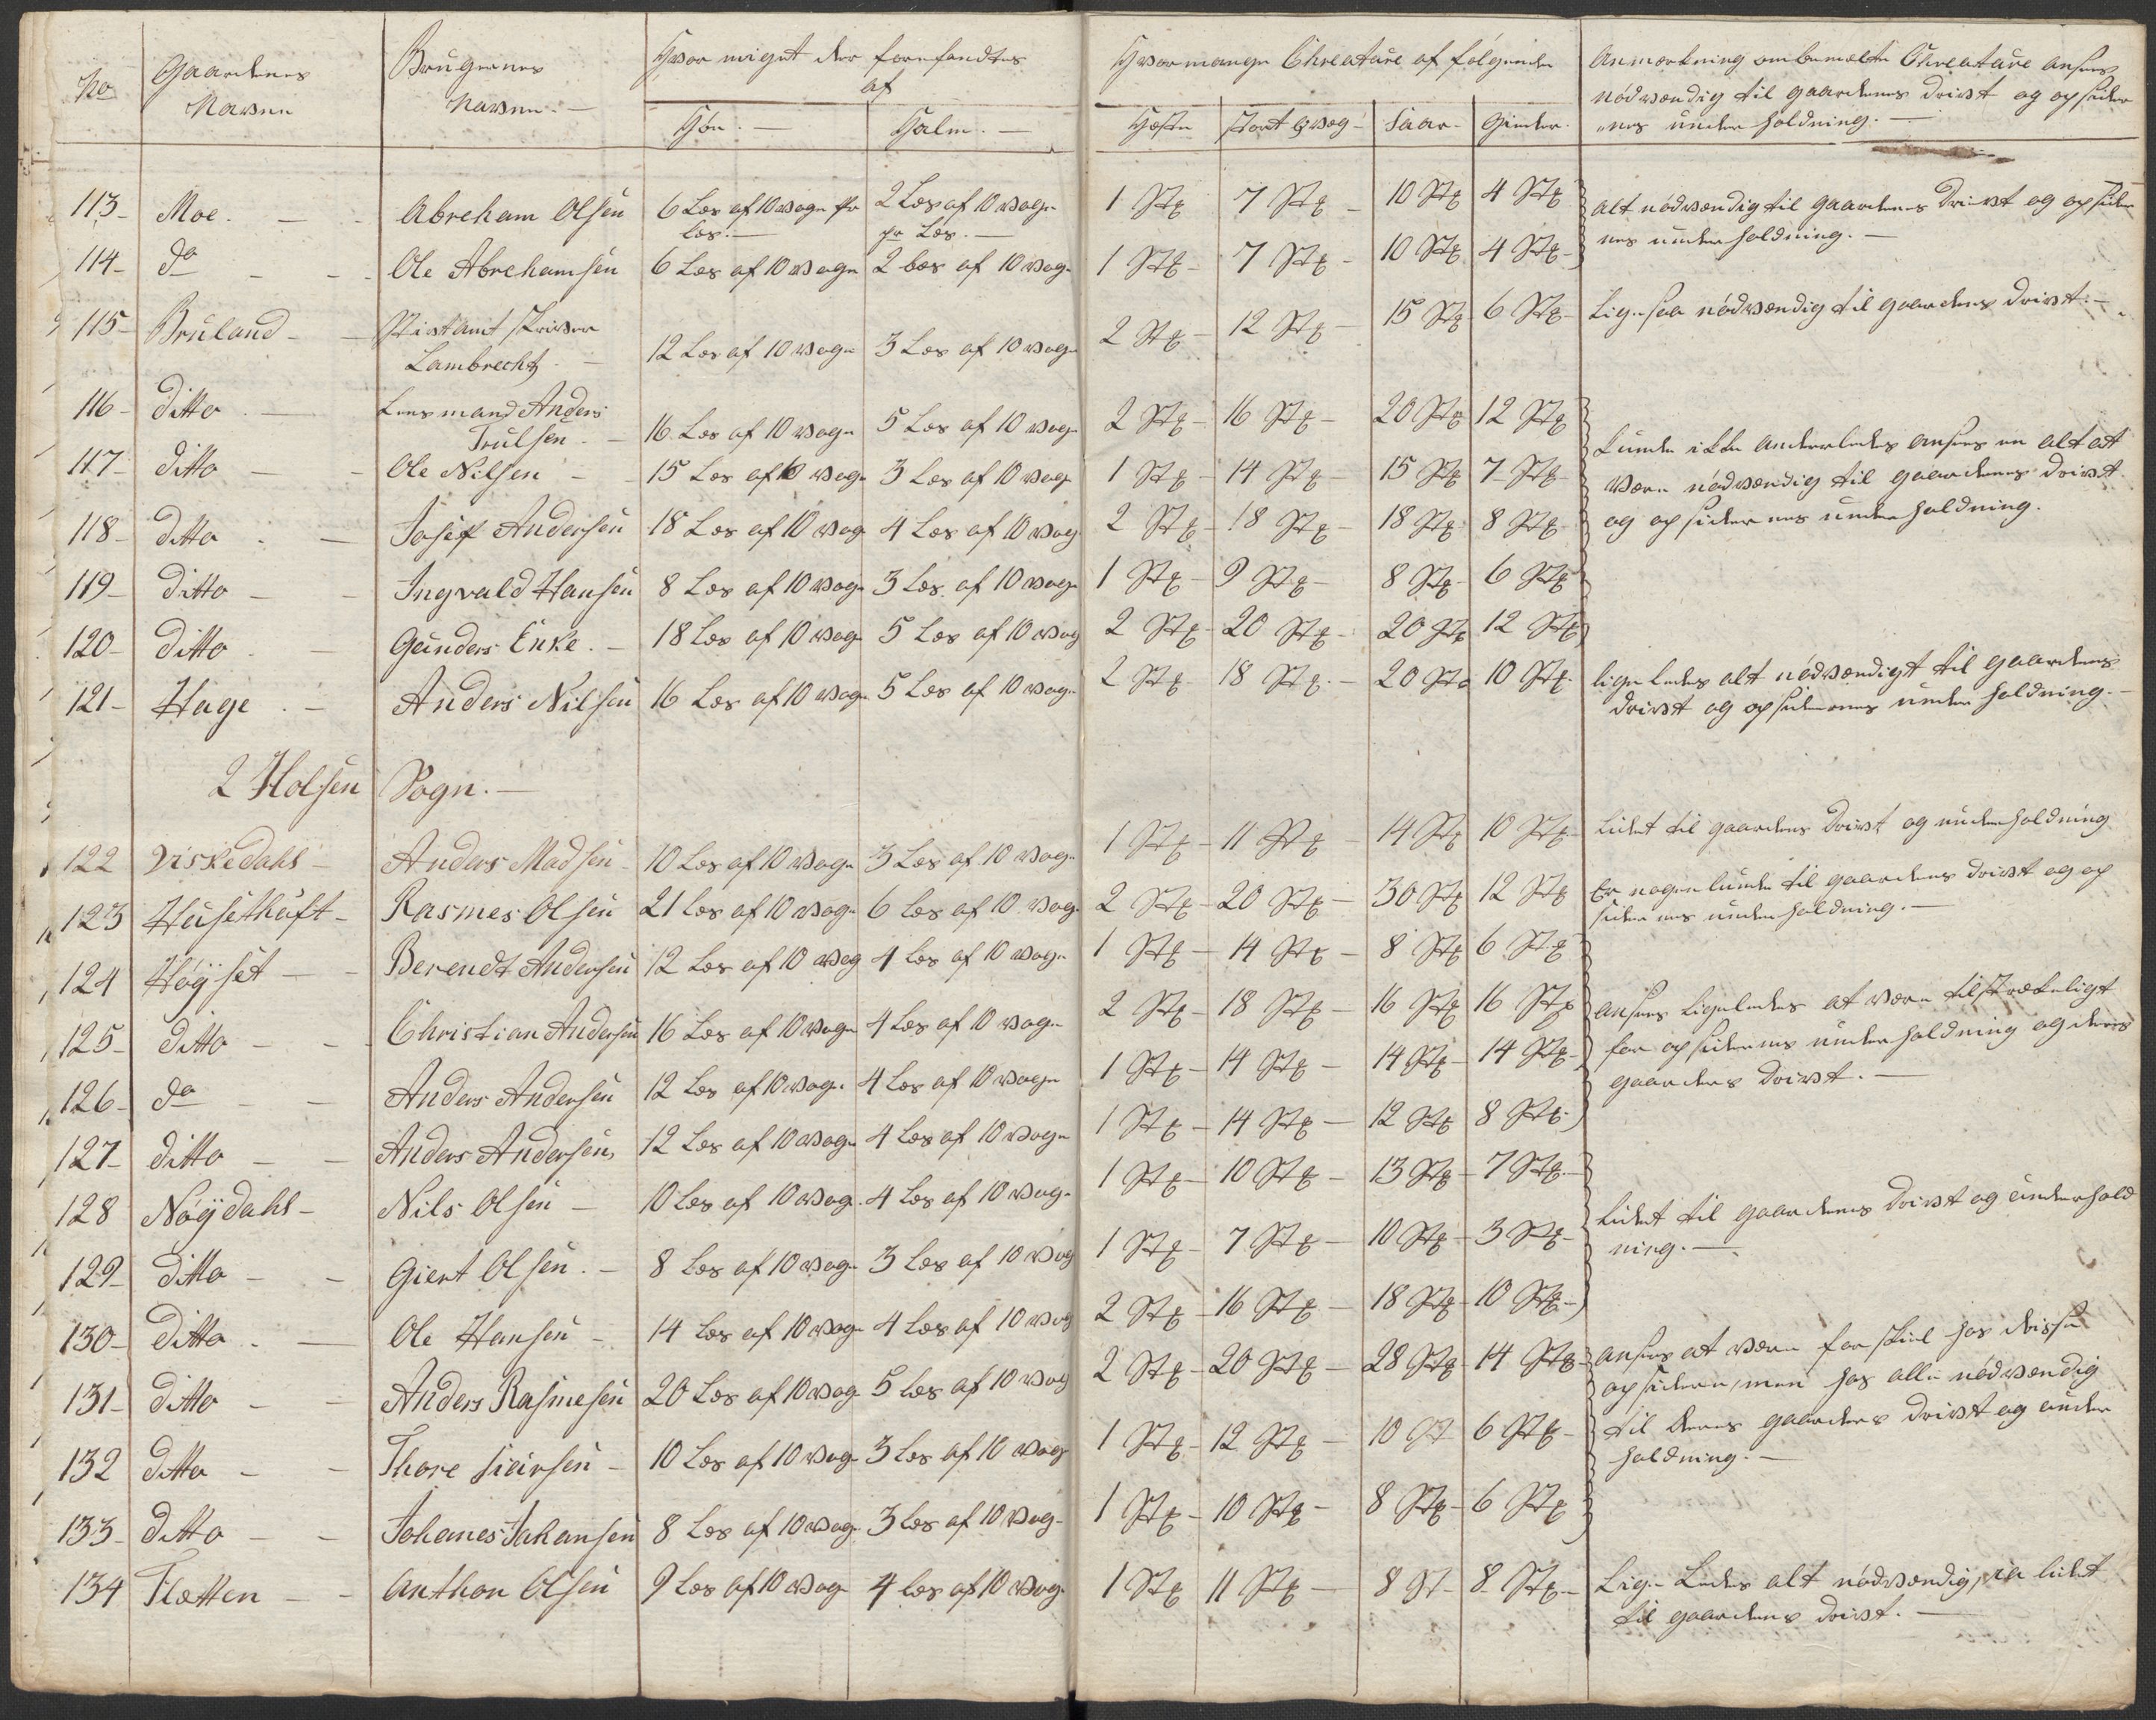 No Gaardenes Navne Brugernes Navne. Hvor miget der forefandtes af Hvor mange Chreature af følgende Anmærkning om bemælte Chreature ansees
nødvændig til gaardenes drivt og opsider
Høe. Halm. Heste Stort Qvæg Faar. Gieder. nes underholdning.
113 Moe. Abreham Olsen 6 Læs af 10 Vage pr Læs. 2 Læs af 10 Vage pr Læs. 1 Stk 7 Stk 10 Stk 4 Stk alt nødvændig til gaardenes drivt og opsider
114 do Ole Abrehamsen 6 Læs af 10 Vage 2 Læs af 10 Vage 1 Stk 7 Stk 10 Stk 4 Stk nes underholdning.
115 Bruland Stiftamt skriver Lambrechtz 12 Læs af 10 Vage 3 Læs af 10 Vage 2 Stk 12 Stk 15 Stk 6 Stk Lige saa nødvændig til gaardens drivt.
116 ditto Lensmand Anders Trulsen 16 Læs af 10 Vage 5 Læs af 10 Vage 2 Stk 16 Stk 20 Stk 12 Stk kunde ikke anderledes ansees en alt at
117 ditto Ole Nilsen 15 Læs af 10 Vage 3 Læs af 10 Vage 1 Stk 14 Stk 15 Stk 7 Stk være nødvændig til gaardenes drivt
118 ditto Josef Andersen 18 Læs af 10 Vage 4 Læs af 10 Vage 2 Stk 18 Stk 18 Stk 8 Stk og opsidernes underholdning.
119 ditto Ingvald Hansen 8 Læs af 10 Vage 3 Læs af 10 Vage 1 Stk 9 Stk 8 Stk 6 Stk
120 ditto Gunders Enke. 18 Læs af 10 Vage 5 Læs af 10 Vage 2 Stk 20 Stk 20 Stk 12 Stk
121 Hage Anders Nilsen 16 Læs af 10 Vage 5 Læs af 10 Vage 2 Stk 18 Stk 20 Stk 10 Stk ligeledes alt nødvændigt til gaardens
drivt og opsidernes underholdning.
2 Holsen Sogn.
122 Viskedahl Anders Madsen 10 Læs af 10 Vage 3 Læs af 10 Vage 1 Stk 11 Stk 14 Stk 10 Stk Lidet til gaardens drivt og underholdning
123 Husetkuft Rasmes Olsen 21 Læs af 10 Vage 6 Læs af 10 Vage 2 Stk 20 Stk 30 Stk 12 Stk Er nogenlunde til gaardens drivt og op
sidernes underholdning.
124 Høÿset Berendt Andersen 12 Læs af 10 Vag 4 Læs af 10 Vage 1 Stk 14 Stk 8 Stk 6 Stk
125 ditto Christian Andersen 16 Læs af 10 Vage 4 Læs af 10 Vage 2 Stk 18 Stk 16 Stk 16 Stk ansees ligeledes at være tilstrækeligt
126 do Anders Andersen 12 Læs af 10 Vage 4 Læs af 10 Vage 1 Stk 14 Stk 14 Stk 14 Stk for opsidernes underholdning og deres
gaarders drivt.
127 ditto Anders Andersen 12 Læs af 10 Vage 4 Læs af 10 Vage 1 Stk 14 Stk 12 Stk 8 Stk
128 Nøÿdahl Nils Olsen 10 Læs af 10 Vage 4 Læs af 10 Vage 1 Stk 10 Stk 13 Stk 7 Stk Lidet til gaardenes drivt og underhold
129 ditto Giert Olsen. 8 Læs af 10 Vage 3 Læs af 10 Vag 1 Stk 7 Stk 10 Stk 3 Stk ning.
130 ditto Ole Hansen 14 Læs af 10 Vage 4 Læs af 10 Vag 2 Stk 16 Stk 18 Stk 10 Stk
131 ditto Anders Rasmesen 20 Læs af 10 Vage 5 Læs af 10 Vag 2 Stk 20 Stk 28 Stk 14 Stk ansees at være forskiel hos disse
opsidere, men hos alle nødvændig
132 ditto Thore 10 Læs af 10 Vage 3 Læs af 10 Vage 1 Stk 12 Stk 10 St 6 Stk til deres gaarders drivt og under
holdning.
133 ditto Johanes Johansen 8 Læs af 10 Vage 3 Læs af 10 Vage 1 Stk 10 Stk 8 Stk 6 Stk
134 Flætten Anthon Olsen 9 Læs af 10 Vag 4 Læs af 10 Vage 1 Stk 11 Stk 8 St 8 Stk Lige Ledes alt nødvændig, ja lidet
til gaardens drivt.